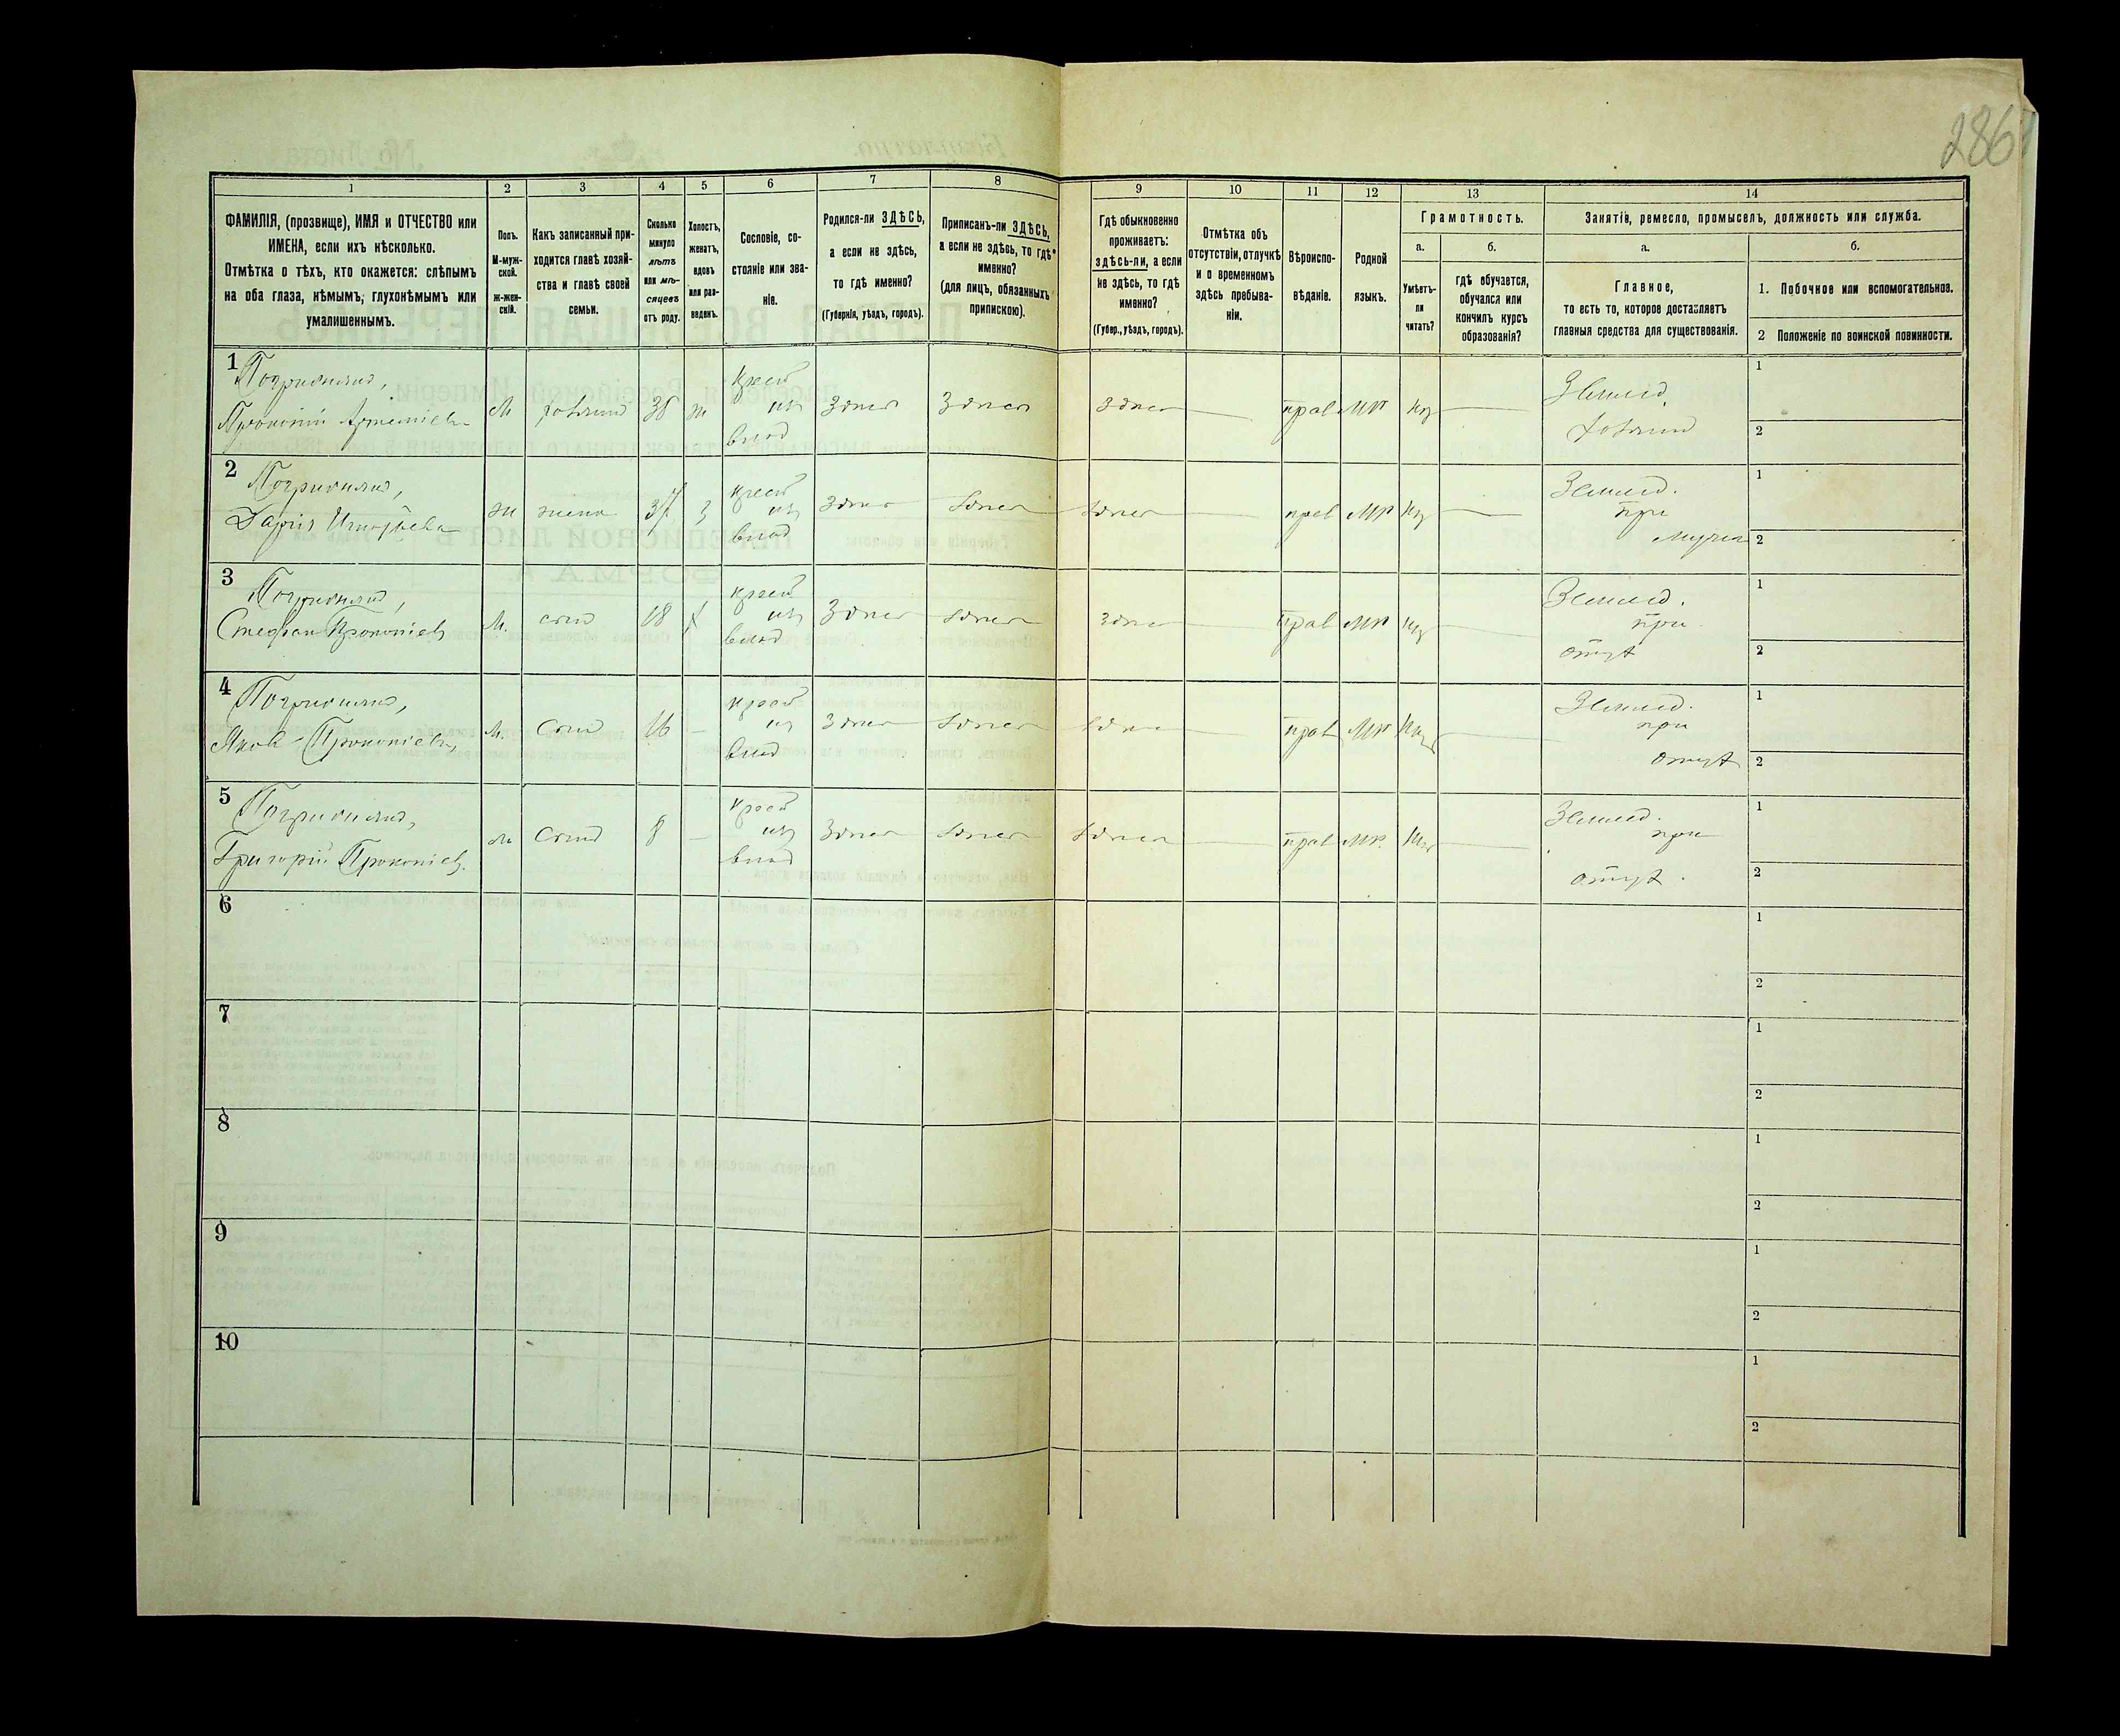 286
1
2
3
4
5
6
7
8
9
10
11
12
13
14
ФАМИЛІЯ, (прозвище), ИМЯ и ОТЧЕСТВО или
ИМЕНА, если ихъ нѣсколько.
Отмѣтка о тѣхъ, кто окажется: слѣпымъ
на оба глаза, нѣмымъ, глухонѣмымъ или
умалишеннымъ.
Полъ.
М-муж-
ской.
ж-жен-
скій.
Какъ записанный при-
ходится главѣ хозяй-
ства и главѣ своей
семьи.
Сколько
минуло
лѣтъ
или мѣ-
сяцевъ
отъ роду.
Холостъ,
женатъ,
вдовъ
или раз-
веденъ.
Сословіе, со-
стояніе или зва-
ніе.
Родился-ли ЗДѢСЬ,
а если не здѣсь,
то гдѣ именно?
(Губернія, уѣздъ, городъ).
Приписанъ-ли ЗДѢСЬ,
а если не здѣсь, то гдѣ
именно?
(для лицъ, обязанныхъ
припискою).
Гдѣ обыкновенно
проживаетъ:
здѣсь-ли, а если
не здѣсь, то гдѣ
именно?
(Губер., уѣздъ, городъ).
Отмѣтка объ
отсутствіи, отлучкѣ
и о временномъ
здѣсь пребыва-
ніи.
Вѣроиспо-
вѣданіе.
Родной
языкъ.
Грамотность.
а.
Умѣетъ-
ли
читать?
б.
гдѣ обучается,
обучался или
кончилъ курсъ
образованія?
Занятіе, ремесло, промыселъ, должность или служба.
а.
Главное,
то есть то, которое доставляетъ
главныя средства для существованія.
б.
1. Побочное или вспомогательное.
2 Положеніе по воинской повинности.
1
Прокопій Артеміевъ
М
38
ж
крест
изъ
влад
здѣсь
здѣсь
здѣсь
прав
мр
нѣ
Землед.
хозяин
1
2
2
Дарія
ж
жена
37
з
крест
изъ
влад
здѣсь
здѣсь
здѣсь
прав
мр
нѣ
Землед.
при
мужѣ
1
2
3
Стефан Прокопіев
М.
сын
18
х
крест
изъ
влад
здѣсь
здѣсь
здѣсь
прав
мр
нѣ
Землед.
при
отцѣ
1
2
4
Яков Прокопіевъ
М.
сын
16
—
крест
изъ
влад
здѣсь
здѣсь
здѣсь
прав
мр
нѣ
Землед.
при
отцѣ
1
2
5
Григорій Прокопіев.
м
сын
8
—
крест
изъ
влад
здѣсь
здѣсь
здѣсь
прав
мр.
Землед.
при
отцѣ.
1
2
6
1
2
7
1
2
8
1
2
9
1
2
10
1
2